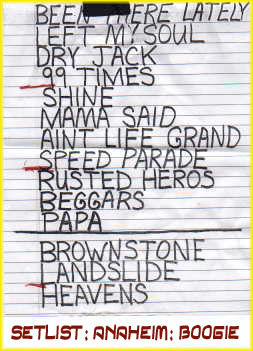 BEEN HERE LATELY
LEFT MY SOUL
DRY JACK
99 TIMES
SHINE
MAMA SAID
AINT LIFE GRAND
SPEED PARADE
RUSTED HEROS
BEGGARS
PAPA
BROWNSTONE
LANDSLIDE
HEAVENS
SETLIST: ANAHEIM: BOOGIE